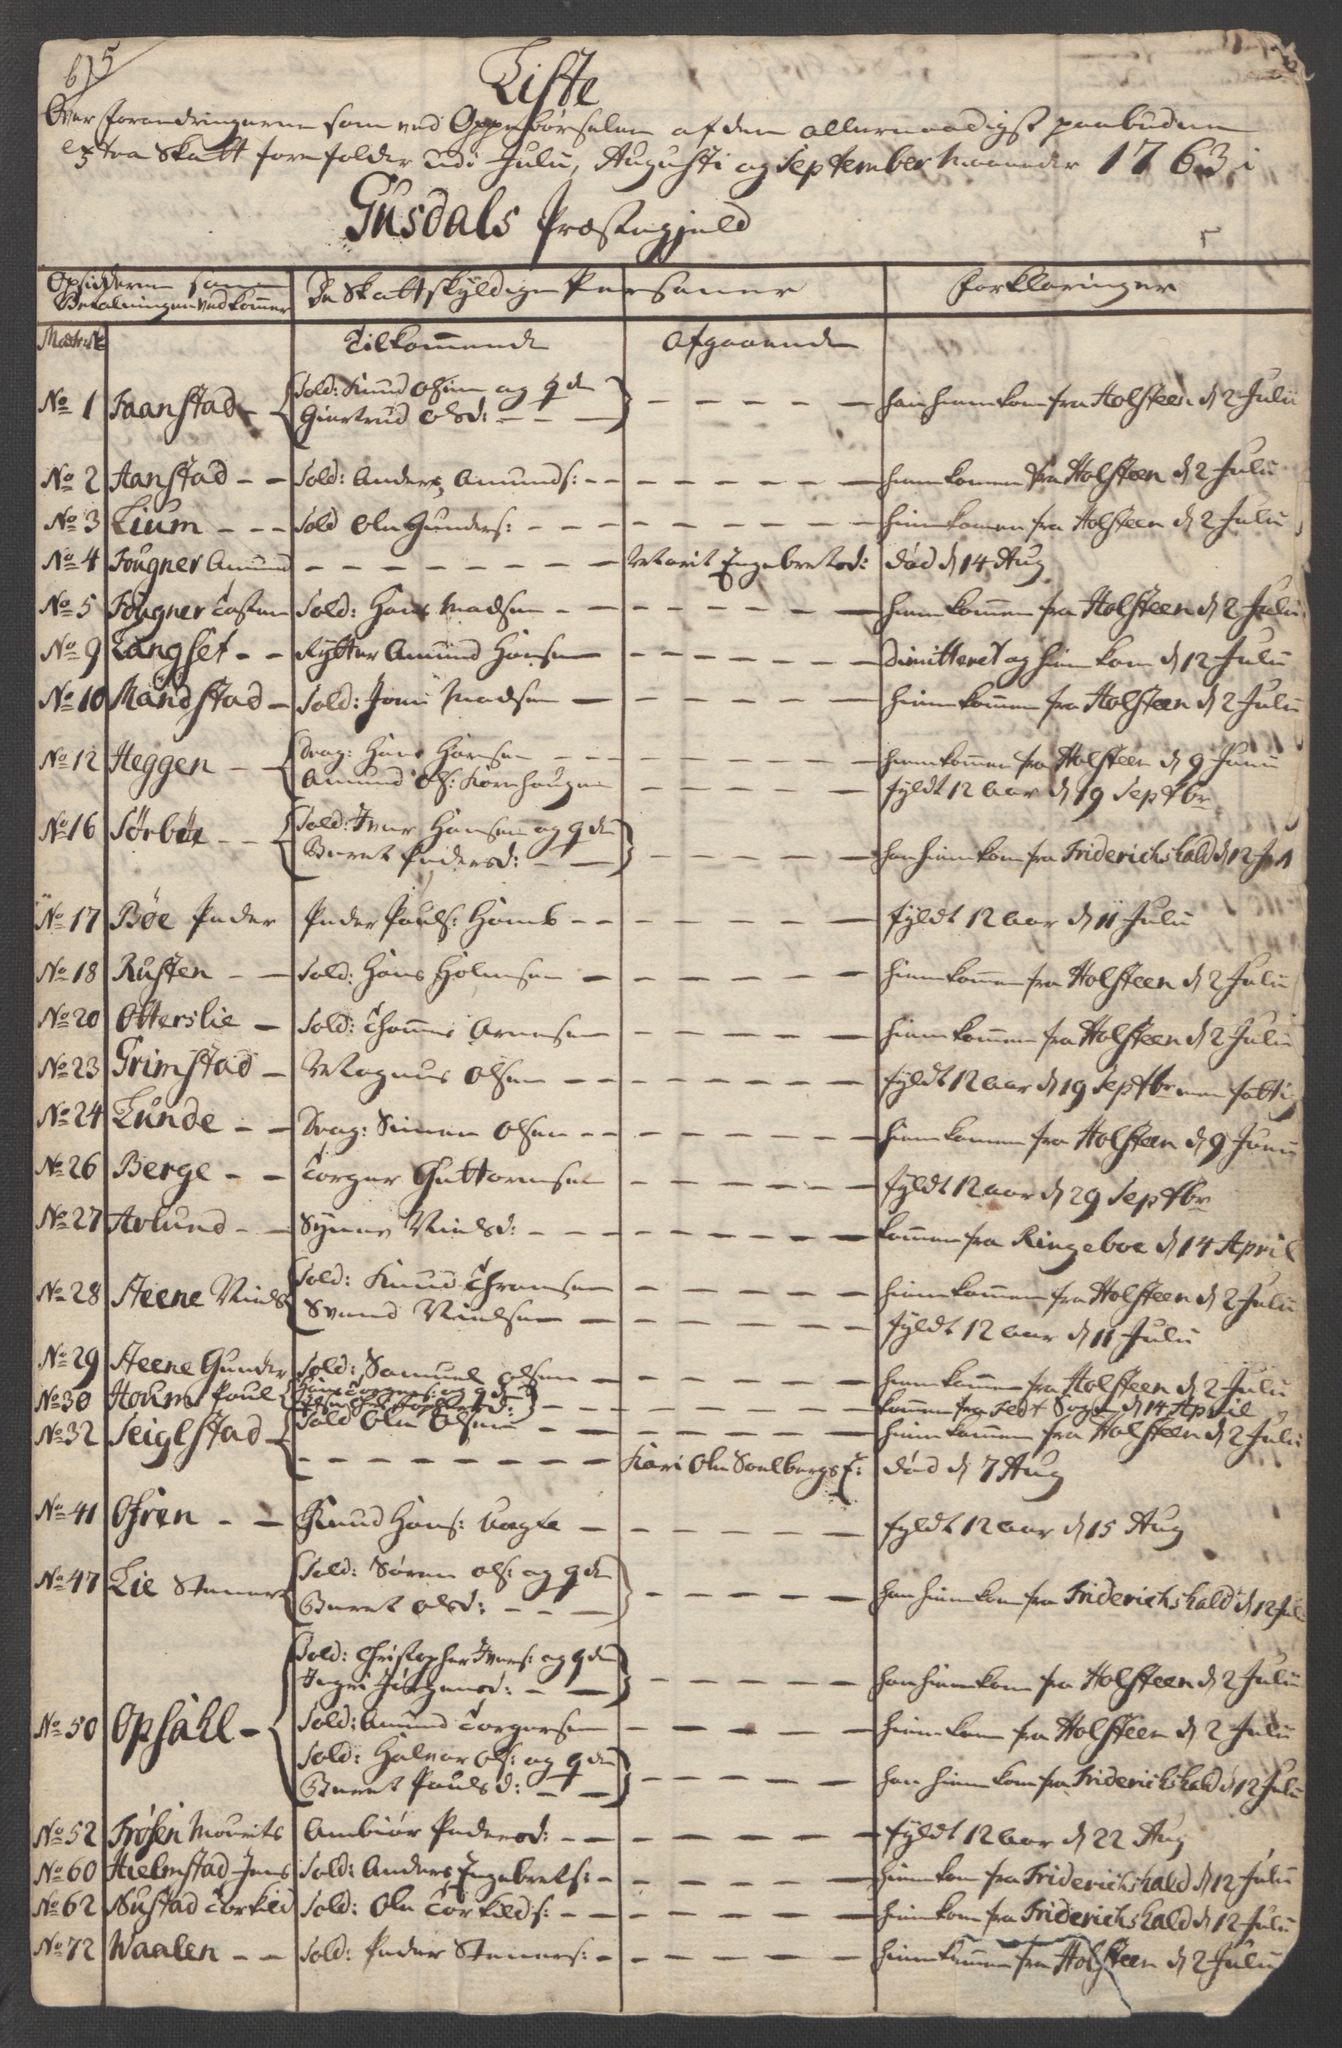 6) 5
Liste
Over forandringerne som ved Oppebørselen af den allernaadigst paabudne
extra Skatt forefolder udi Julii, Augusti og September Maaneder 1763 i
Gusdals Præstegjeld
Opsidderne som Betalningen vedkommer | De Skattskyldige Personer | Forklaringer
Matrik | Tilkommende | Afgaaende
No 1 Faanstad - { Sold: Knud Olsen og qden
Giertrud Olsd: - - - } - - - - - han hiemkom fra Holsteen d 2 Julii
No 2 Aanstad - - Sold: Anders Amunds: - - - - - - - hiemkomen fra Holsteen d 2 Julii
No 3 Lium - - - Sold Ole Gunders: - - - - - - - hiemkomen fra Holsteen d 2 Julii
No 4 Fougner Amund - - - - - - - - Marit Engebretsd: død d 14 Aug
No 5 Fougner Tosten Sold: Hans Madsen - - - - - - - hiemkommen fra Holsteen d 2 Julii
No 9 Langset - - Rytter Amund Hansen - - - - - - dimitteret og hiemkom d 12 Julii
No 10 Mandstad - Sold: Jens Madsen - - - - - - hiemkommen fra Holsteen d 2 Julii
No 12 Heggen - - { Drag: Hans Hansen - - - - - - - hiemkommen fra Holsteen d 9 Junii
Amund Ols: Kornhaugen - - - - - - fyldt 12 aar d 19 Septbr
No 16 Sørbøe - - { Sold: Iver Hansen og qden
Beret Pedersd: - - } - - - - - - han hiemkom fra Friderichshald d 12 Jul
No 17 Bøe Peder Peder Pouls: - - - - - - - fyldt 12 aar d 11 Julii
No 18 Rusten - - Sold: Hans Holmsen - - - - - - - hiemkommen fra Holsteen d 2 Julii
No 20 Otterslie - Sold: Thomes Arnesen - - - - - - hiemkommen fra Holsteen d 2 Julii
No 23 Grimstad - Magnus Olsen - - - - - - - fyldt 12 aar d 19 Septbr men fattig
No 24 Lunde - - Drag: Simen Olsen - - - - - - - hiemkomen fra Holsteen d 9 Junii
No 26 Berge - - Torger Guttormsen - - - - - - fyldt 12 aar d 29 Septbr
No 27 Avlund - - Synnev Nielsd: - - - - - - - kommen fra Ringeboe d 14 April
No 28 Steene Niels { Sold: Knud Thronsen - - - - - - hiemkommen fra Holsteen d 2 Julii
Svend Nielsen - - - - - - - fyldt 12 aar d 11 Julii
No 29 Steene Gunder Sold: Samuel Olsen - - - - - - - hiemkommen fra Holsteen d 2 Julii
No 30 Houms Poul { og qden
} - - - - - - - kommen fra Sogn d 14 April
No 32 Seiglstad - { Sold Ole Olsen - - - - - - - hiemkommen fra Holsteen d 2 Julii
- - - - - - - - Kari Ole Soelbergs E: død d 7 Aug
No 41 Ofren - - Knud Hans: - - - - - - - fyldt 12 aar d 15 Aug
No 47 Lie Stener { Sold: Søren Ols: og qden
Beret Olsd: - - - } - - - - - - han hiemkom fra Friderichshald d 12 Jul
No 50 Opsahl - { Sold: Christopher Ivers: og qden
Ingri Jørgensd: - - } - - - - - - han hiemkom fra Holsteen d 2 Julii
Sold: Amund Torgersen - - - - - hiemkom fra Holsteen d 2 Julii
Sold: Halvor Ols: og qden
Beret Poulsd: - - } - - - - - - han hiemkom fra Friderichshald d 12 Julii
No 52 Frøsen Mourits Ambiør Pedersd: - - - - - - - fyldt 12 aar d 22 Aug
No 60 Hielmstad Jens Sold: Anders Engebrets: - - - - - - hiemkom fra Friderichshald d 12 Julii
No 62 Nustad Torkild Sold: Ole Torkilds: - - - - - - - hiemkom fra Friderichshald d 12 Julii
No 72 Waalen - - Sold: Peder Steners: - - - - - - hiemkommen fra Holsteen d 2 Julii